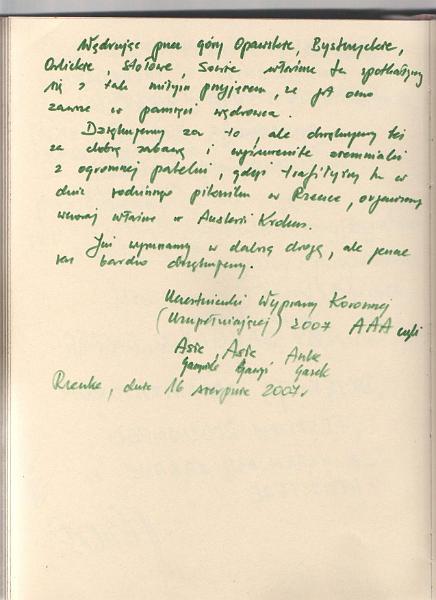 Wędrując przez góry Opawskie, Bystrzyckie,
Orlickie, Stołowe, Sowie właśnie tu spotkaliśmy
się z tak miłym przyjęciem, że jest ono
zawsze w pamięci wędrowca.
Dziękujemy za to, ale dziękujemy też
za dobrą zabawę i wyśmienite ziemniaki
z ogromnej patelni, gdyż trafiłyśmy tu w
dniu rodzinnego pikniku w Rzeczce, organizowany
wczoraj właśnie w Austerii Krokus.
Już wyruszamy w dalszą drogę, ale jeszcze
raz bardzo dziękujemy.
Uczestniczki Wyprawy Koronnej
(Uzupełniającej) 2007 AAA czyli
Asia, Asia Anka
Gąsek
Rzeczka, dnia 16 sierpnia 2007r